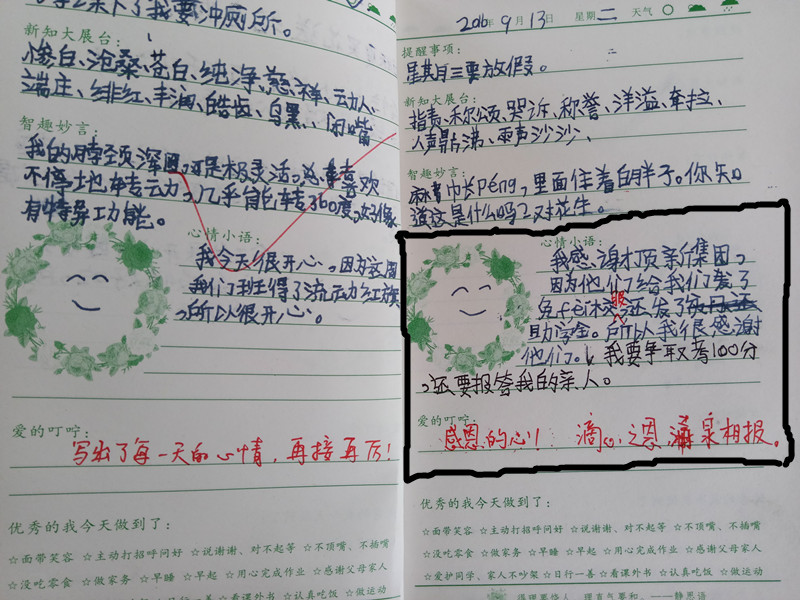 了我要冲厕所。
新知大展台:
惨白、沧桑、苍白、纯净、慈祥、动人、
端庄、绯红、丰润、皓齿、乌黑、闭嘴
智趣妙言:
我的脖颈深圆,可是极灵活。总喜欢
不停地转动,几乎能转360度,好像
有特异功能。
心情小语:
我今天很开心。因为这周
我们班得了流动红旗
,所以很开心。
爱的叮咛:
写出了每一天的心情,再接再厉!
优秀的我今天做到了:
☆面带笑容 ☆主动打招呼问好 ☆说谢谢、对不起等 ☆不顶嘴、不插嘴
☆没吃零食 ☆做家务 ☆早睡 ☆早起 ☆用心完成作业 ☆感谢父母家人
☆爱护同学、家人不吵架 ☆日行一善 ☆看课外书 ☆认真吃饭 ☆做运动
2016年9月13日 星期二 天气
提醒事项:
星其月三要放假。
新知大展台:
指责、称颂、哭诉、称誉、洋溢、牵挂、
人声鼎沸、雨声沙沙、
智趣妙言:
麻青巾长Péng,里面住着白胖子。你知
道这是什么吗?对花生。
心情小语:
我感谢才顶亲行集团,
因为他们给我们发了
免fei校服还发了
助学金。所以我很感谢
他们。我要争取考100分
,还要报答我的亲人。
爱的叮咛:
感恩的心! 滴水之恩,涌泉相报。
优秀的我今天做到了:
☆面带笑容 ☆主动打招呼问好 ☆说谢谢、对不起等 ☆不顶嘴、不插嘴
☆没吃零食 ☆做家务 ☆早睡 ☆早起 ☆用心完成作业 ☆感谢父母家人
☆爱护同学、家人不吵架 ☆日行一善 ☆看课外书 ☆认真吃饭 ☆做运动
得理要饶人,理直气要和。——静思语